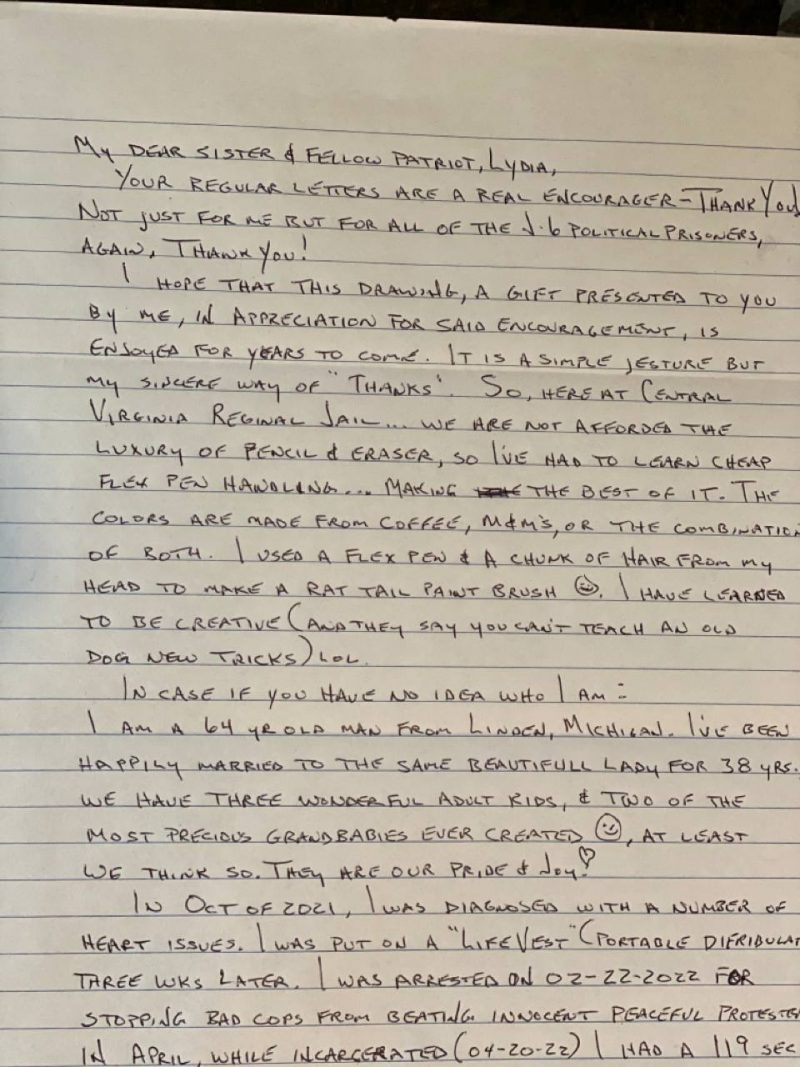 My DEAR SISTER & FELLOW PATRIOT, LYDIA,
YOUR REGULAR LETTERS ARE A REAL ENCOURAGER - THANK YOU
NOT JUST FOR ME BUT FOR ALL OF THE J.6 POLITICAL PRISONERS,
AGAIN, THANK YOU!
I HOPE THAT THIS DRAWING, A GIFT PRESENTED TO YOU
BY ME, IN APPRECIATION FOR SAID ENCOURAGEMENT, IS
ENJOYED FOR YEARS TO COME. IT IS A SIMPLE JESTURE BUT
MY SINCERE WAY OF "THANKS". SO, HERE AT CENTRAL
VIRGINIA REGINAL JAIL... WE ARE NOT AFFORDED THE
LUXURY OF PENCIL & ERASER, SO I'VE HAD TO LEARN CHEAP
FLEX PEN HANDLING... MAKING THE BEST OF IT. THE
COLORS ARE MADE FROM COFFEE, M&M'S, OR THE COMBINATION
OF BOTH. I USED A FLEX PEN & A CHUNK OF HAIR FROM MY
HEAD TO MAKE A RAT TAIL PAINT BRUSH ☺. I HAVE LEARNED
TO BE CREATIVE (AND THEY SAY YOU CAN'T TEACH AN OLD
DOG NEW TRICKS) LOL.
IN CASE IF YOU HAVE NO IDEA WHO I AM:
I AM A 64 YR OLD MAN FROM LINDEN, MICHIGAN. I'VE BEEN
HAPPILY MARRIED TO THE SAME BEAUTIFULL LADY FOR 38 YRS.
WE HAVE THREE WONDERFUL ADULT KIDS, & TWO OF THE
MOST PRECIOUS GRANDBABIES EVER CREATED ☺, AT LEAST
WE THINK SO. THEY ARE OUR PRIDE & JOY! ♡
IN OCT OF 2021, I WAS DIAGNOSED WITH A NUMBER OF
HEART ISSUES. I WAS PUT ON A "LIFEVEST" (PORTABLE DIFRIBULAT
THREE WKS LATER. I WAS ARRESTED ON 02-22-2022 FOR
STOPPING BAD COPS FROM BEATING INNOCENT PEACEFUL PROTESTE
IN APRIL, WHILE INCARCERATED (04-20-22) I HAD A 119 SEC